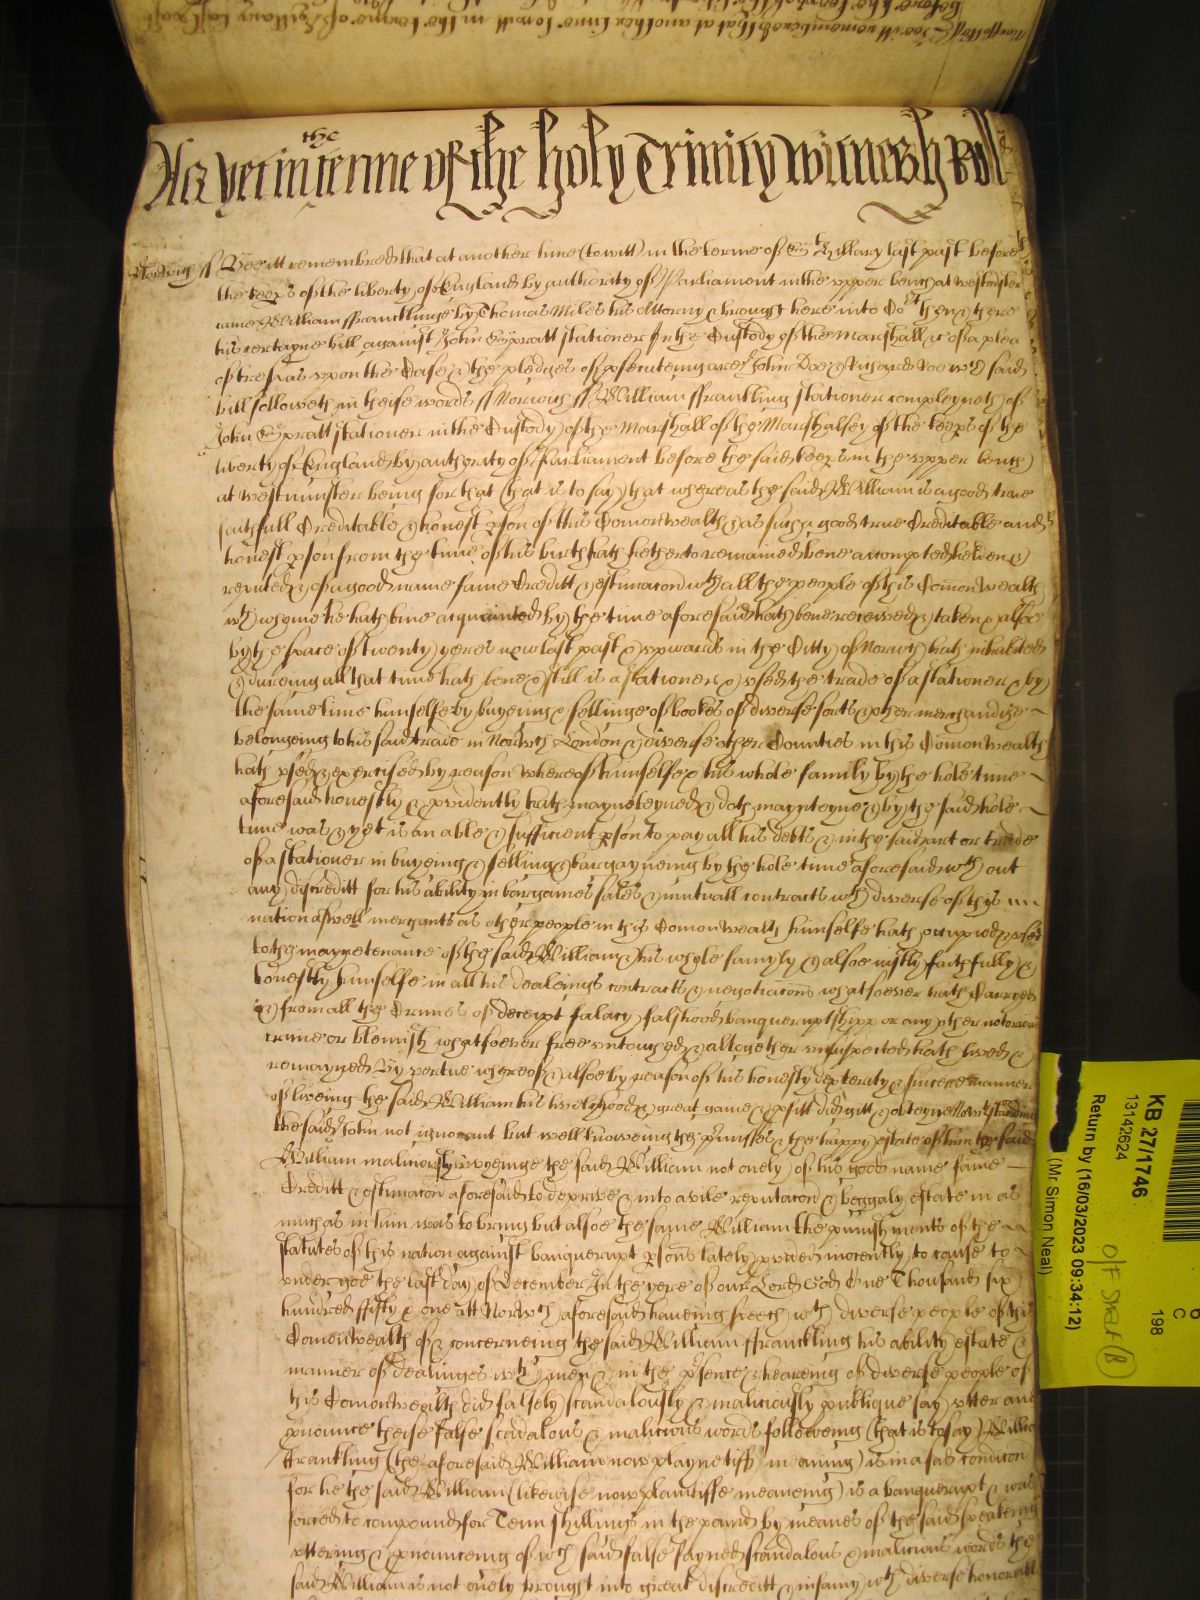 As yet in the terme of the holy Trinity witnesh Roll
Norwich ss Bee itt remembred that at another time (to witt) in the terme of St Hillary last past before
the keeps of the liberty of England by authority of Parliament in the vpper bench at westminster
came William ffrancklinge by Thomas Miles his Attorny & brought here into Cort then & there
his certayne bill against John Spratt stationer in the Custody of the Marshall &c of a plea
of trespas vpon the Case & the pledges of psecuteing are John Doe & Richard Roe wch said
bill followeth in theise words ss Norwich ss William ffranckling stationer compleyneth of
John Spratt stationer in the Custody of the Marshall of the Marshalsey of the keeps of the
liberty of England by authority of Parliament before the said keeps in the vpper bench
at Westminster being for that (that is to say) that whereas the said William is a good true
faithfull Creditable & honest pson of this Comonwealth & as such a good true Creditable and
honest pson from the time of his birth hath hetherto remained bene accompted beleived
reputed & of a good name fame Creditt & estimacon wth all the people of this Comon Wealth
wth whome he hath bine acquainted by the time aforesaid hath bene received & taken & alsoe
by the space of twenty yeres now last past & vpwards in the Citty of Norwch hath inhabited
& dureing all that time hath bene & still is a stationer & vsed the trade of a stationer & by
the same time himselfe by buyeing & sellinge of bookes of diverse sorts & other merchandize
belongeing to his said trade in Norwch London & diverse other Counties in this Comonwealth
hath vsed & exercised by reason whereof himselfe & his whole family by the hole time
aforesaid honestly & prudently hath maynteyned & doth maynteyne & by the said hole
time was & yet is an able & sufficient pson to pay all his debts & in the said art or trade
of a stationer in buyeing & selling & bargayneing by the hole time aforesaid wth out
any discreditt for his ability in bargaines sales & mutuall contracts wth diverse of this
nation aswell merchants as other people in this Comonwealth himselfe hath occupied & vsed
to the mayntenance of the said William & his whole famyly & alsoe iustly faithfully &
honestly himselfe in all his dealeings contracts & negotiacons whatsoever hath Carryed
& from all the Crimes of deceipt falacy falshood banqueruptshipp or any other notorious
crime or blemish whatsoever free vntouched & altogether vnsuspected hath lived &
remayned By vertue whereof & alsoe by reason of his honesty dexterity & sincere manner
of liveing the said William his livelyhood & great gaine & pfitt did gitt & obteyne Notwthstanding
the said John not ignorant but well knoweing the pmisses & the happy estate of him the said
William maliciously envyeinge the said William not onely of his good name fame
Creditt & estimacon aforesaid to deprive & into a vile reputacon & beggaly estate in as
much as in him was to bring but alsoe the same William the punishments of the
statutes of this nation against banquerupt psons lately pvided inocently to cause to
vndergoe the last day of December In the yere of our Lord God One Thousand six
hundred ffifty & one att Norwch aforesaid haueing speech wth diverse people of this
Comonwealth of & concerneing the said William ffranckling his ability estate &
manner of dealinges wth men & in the psence & heareing of diverse people of
this Comonwealth did falsely scandalously & maliciously publique say vtter and
pnounce theise false scandalous & malicious words followeing (that is to say) William
ffranckling (the aforesaid William now playnetiff meaning) is in a sad condicon
for he the said William (likewise now plaintiffe meaneing) is a banquerupt & was
forced to compound for Tenn shillings in the pound by meanes of the said speakeing
vttering & pnounceing of wch said false fayned scandalous & malicious words the
said William is not onely brought into great discreditt & infamy wth diverse honorable
KB 27/1746
13142624
Return by (16/03/2023 09:34:12)
(Mr Simon Neal)
198
C